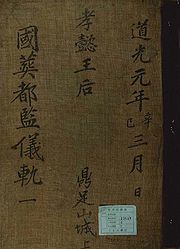 道光元年辛巳三月 日
孝懿王后
鼎足山城上
國葬都監儀軌 一